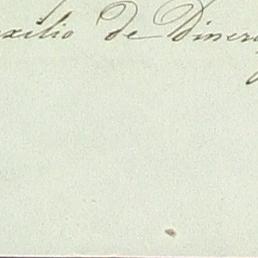 uxilio de Diner